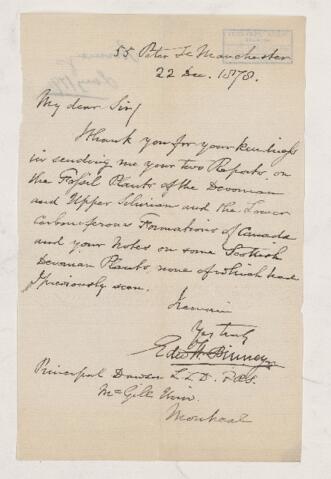 55 Peter St Manchester
22 Dec. 1878.
My dear Sir/
Thank you for your kindness
in sending me your two Reports on
the Fossil Plants of the Devonian
and Upper Silurian and the Lower
Carboniferous Formations of Canada
and your Notes on some Scottish
Devonian Plants, none of which had
I previously seen.
I remain
Yrs truly
Edw W. Binney
Principal Dawson L.L.D. F.R.S.
McGill Univ
Montreal